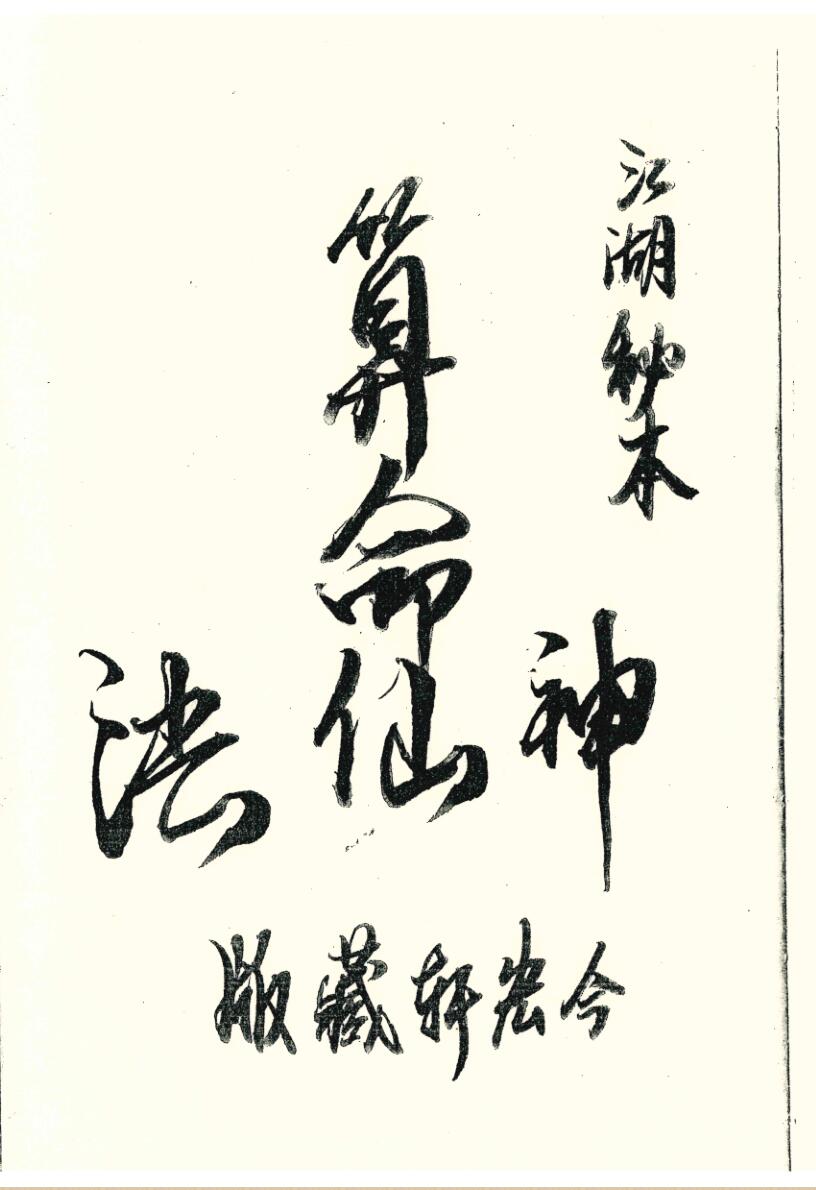 江湖秘本
算命
神仙法
今宏軒藏版